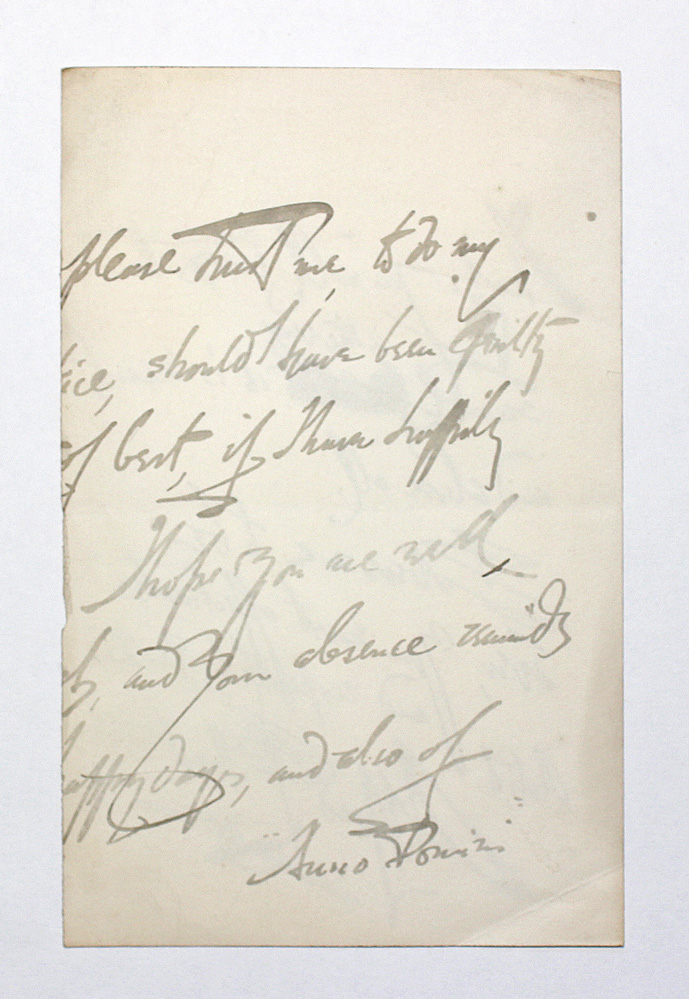 please trust me, to do my
ice, should have been guilty
of best, if I have happily
I hope you are well,
and your absence reminds
happy days, and also of
"Anno Domini"